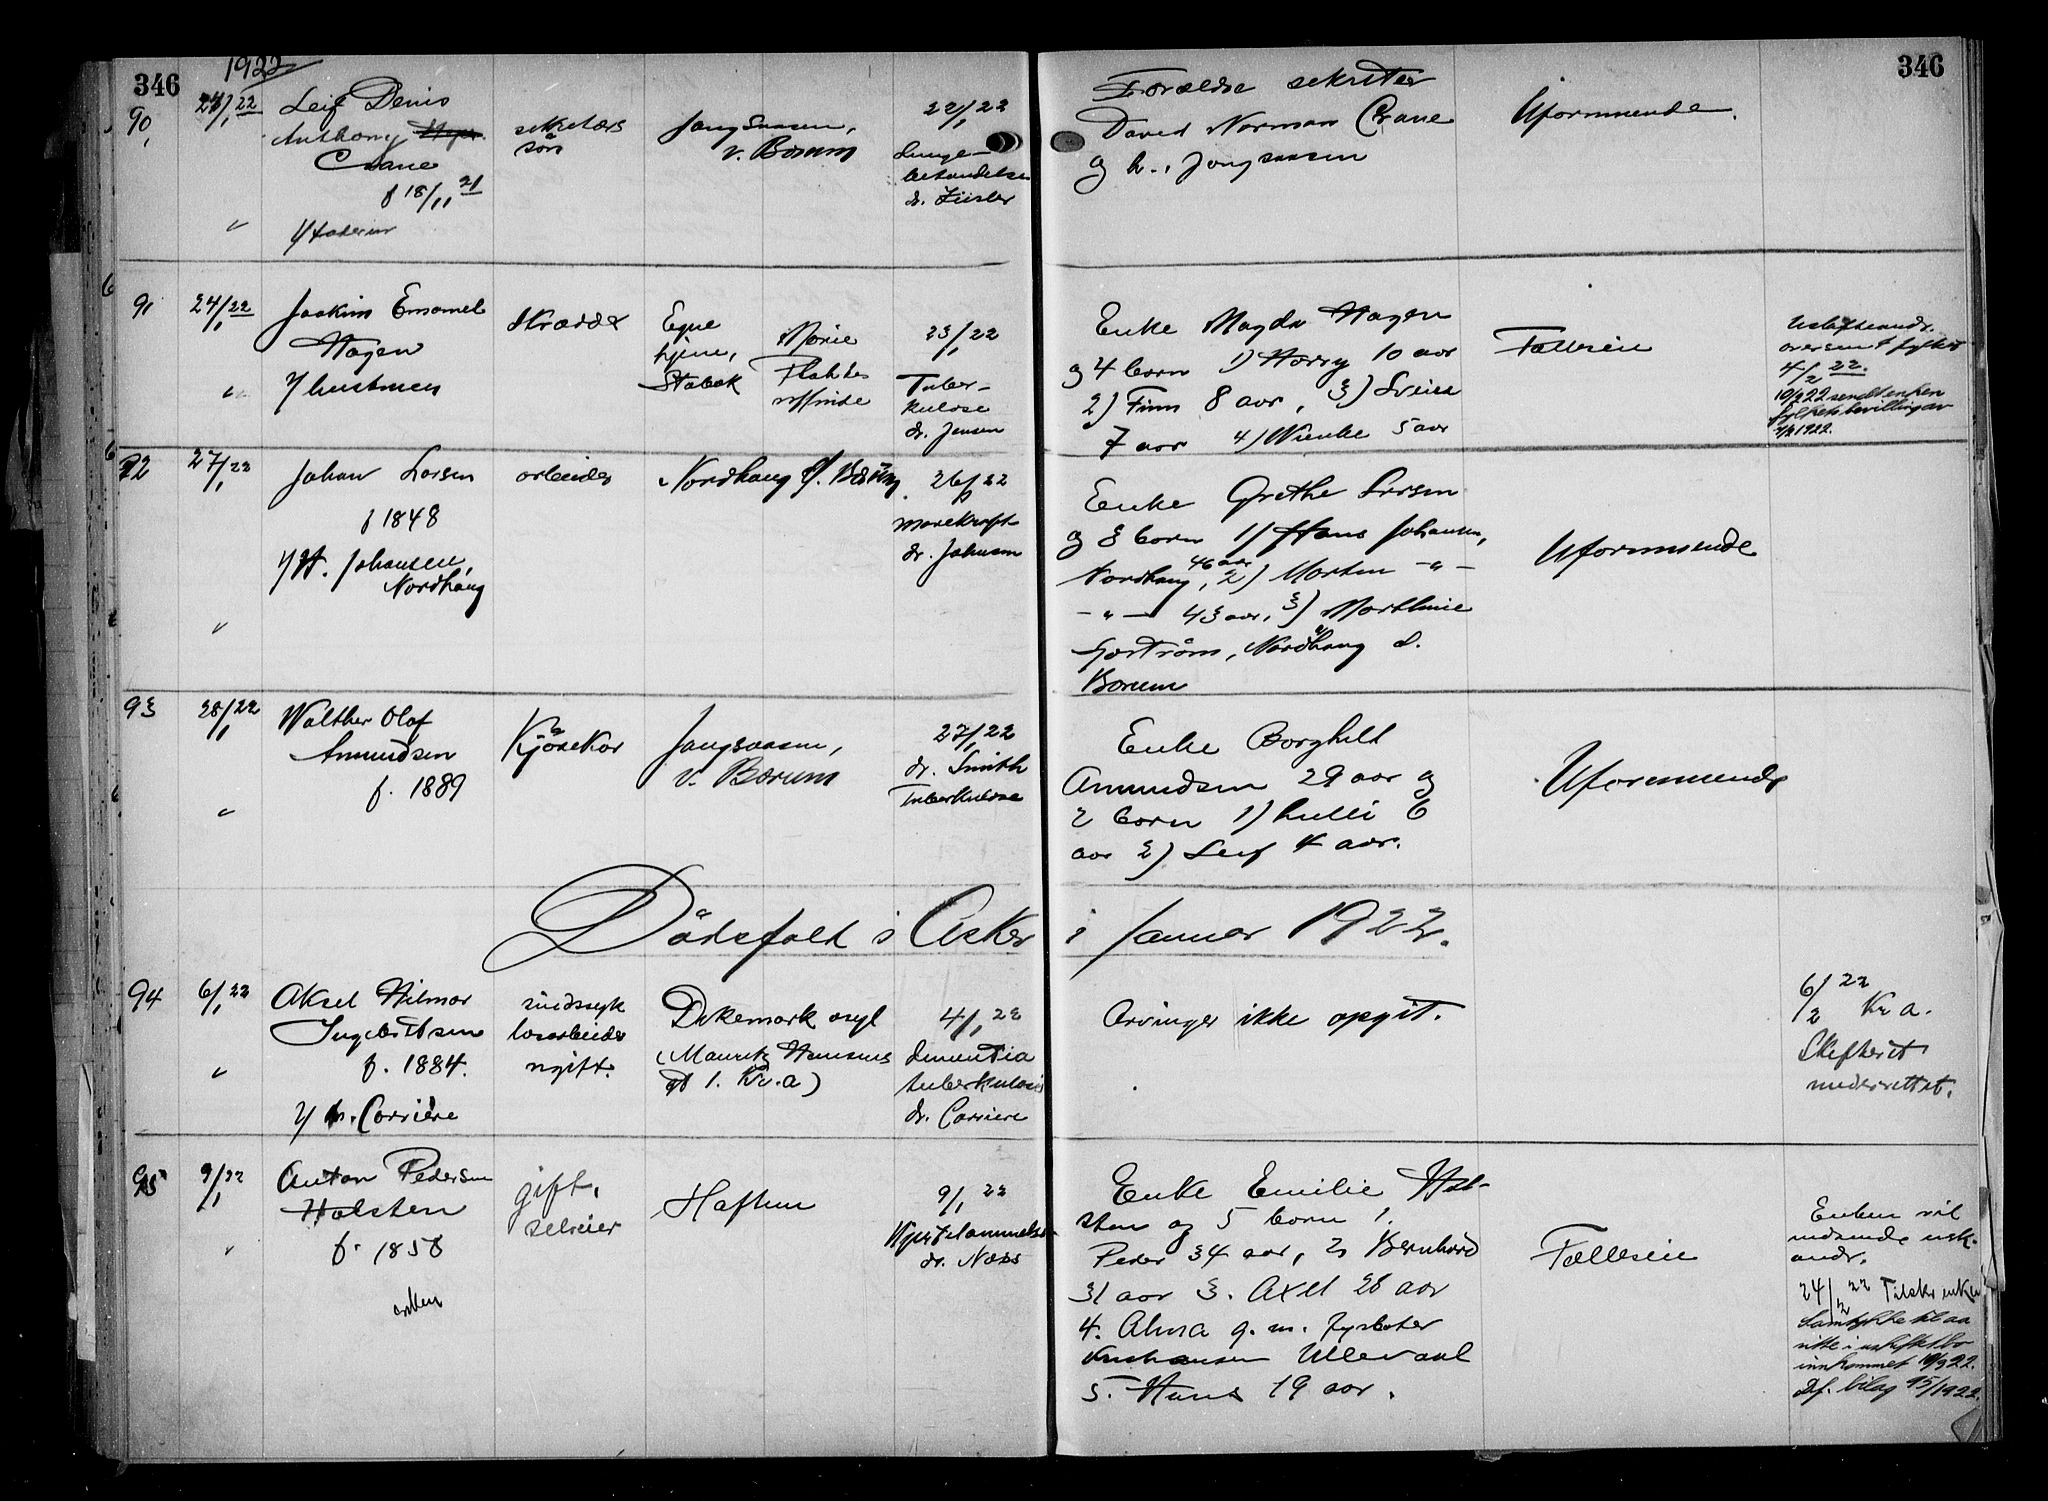 346
1922
346
90
24/1 22
Leif Denis
Anthony
Crane
f 18/11 21
sekretærs
søn
Jongsaasen,
v. Bærum
22/1 22
Lunge-
betændelse
Forældre sekretær
David Norman Crane
og h., Jongsaasen
Uformuende.
91
24/1 22
Joakim Emanuel
Hagen
v/ hustruen
skrædder
Egne
hjem,
Stabæk
23/1 22
Tuber-
kulose
dr. Jensen
Enke Magda Hagen
og 4 børn 1) Harry 10 aar
2) Finn 8 aar, 3)
7 aar 4) Wienke 5 aar
Fælleseie
4/2 22.
92
27/1 22
Johan Larsen
f 1848
v/ H. Johansen,
Nordhaug
arbeider
Nordhaug Ø. Bærum
26/1 22
marekraft
dr. Johnson
Enke Grethe Larsen
og 3 børn 1) Hans Johansen,
Nordhaug, 46 aar 2) Morten -"-
-"- 43 aar, 3) Marthine
Nordhaug Ø.
Bærum
Uformuende
93
28/1 22
Walther Olaf
Amundsen
f. 1889
Kjørekar
Jongsaasen,
v. Bærum
27/1 22
dr. Smith
Tuberkulose
Enke Borghild
Amundsen 29 aar og
2 børn 1) Lulli 6
aar 2) Leif 4 aar.
Uformuende
Dødsfald i Asker i Januar 1922.
94
6/1 22
Aksel Hilmar
Ingebretsen
f. 1884.
v/ dr. Carrière
sindssyk
løsarbeider
ugift.
Dikemark asyl
(Mauritz Hansens
gt 1. Kr.a)
4/1 22
dementia
tuberkulose
dr. Carriere
Arvinger ikke opgit.
6/2 22 Kr.a.
Skifteret
underrettet.
95
9/1 22
Anton Pedersen
Holsten
f. 1856
enken
gift,
selveier
Haftun
9/1 22
Hjertelammelse
dr. Næss
Enke Emilie Hol-
sten og 5 børn 1.
Peder 34 aar, 2. Bernhard
31 aar 3. Axel 28 aar
4. Alma g. m. fyrbøter
Kristiansen Ullevaal
5. Hans 19 aar.
Fælleseie
Enken vil
indsende usk.
andr.
24/2 22 Tilskr. enken
Samtykke til aa
sitte i uskiftet bo
innkommet 10/3 22.
Jf. bilag 95/1922.